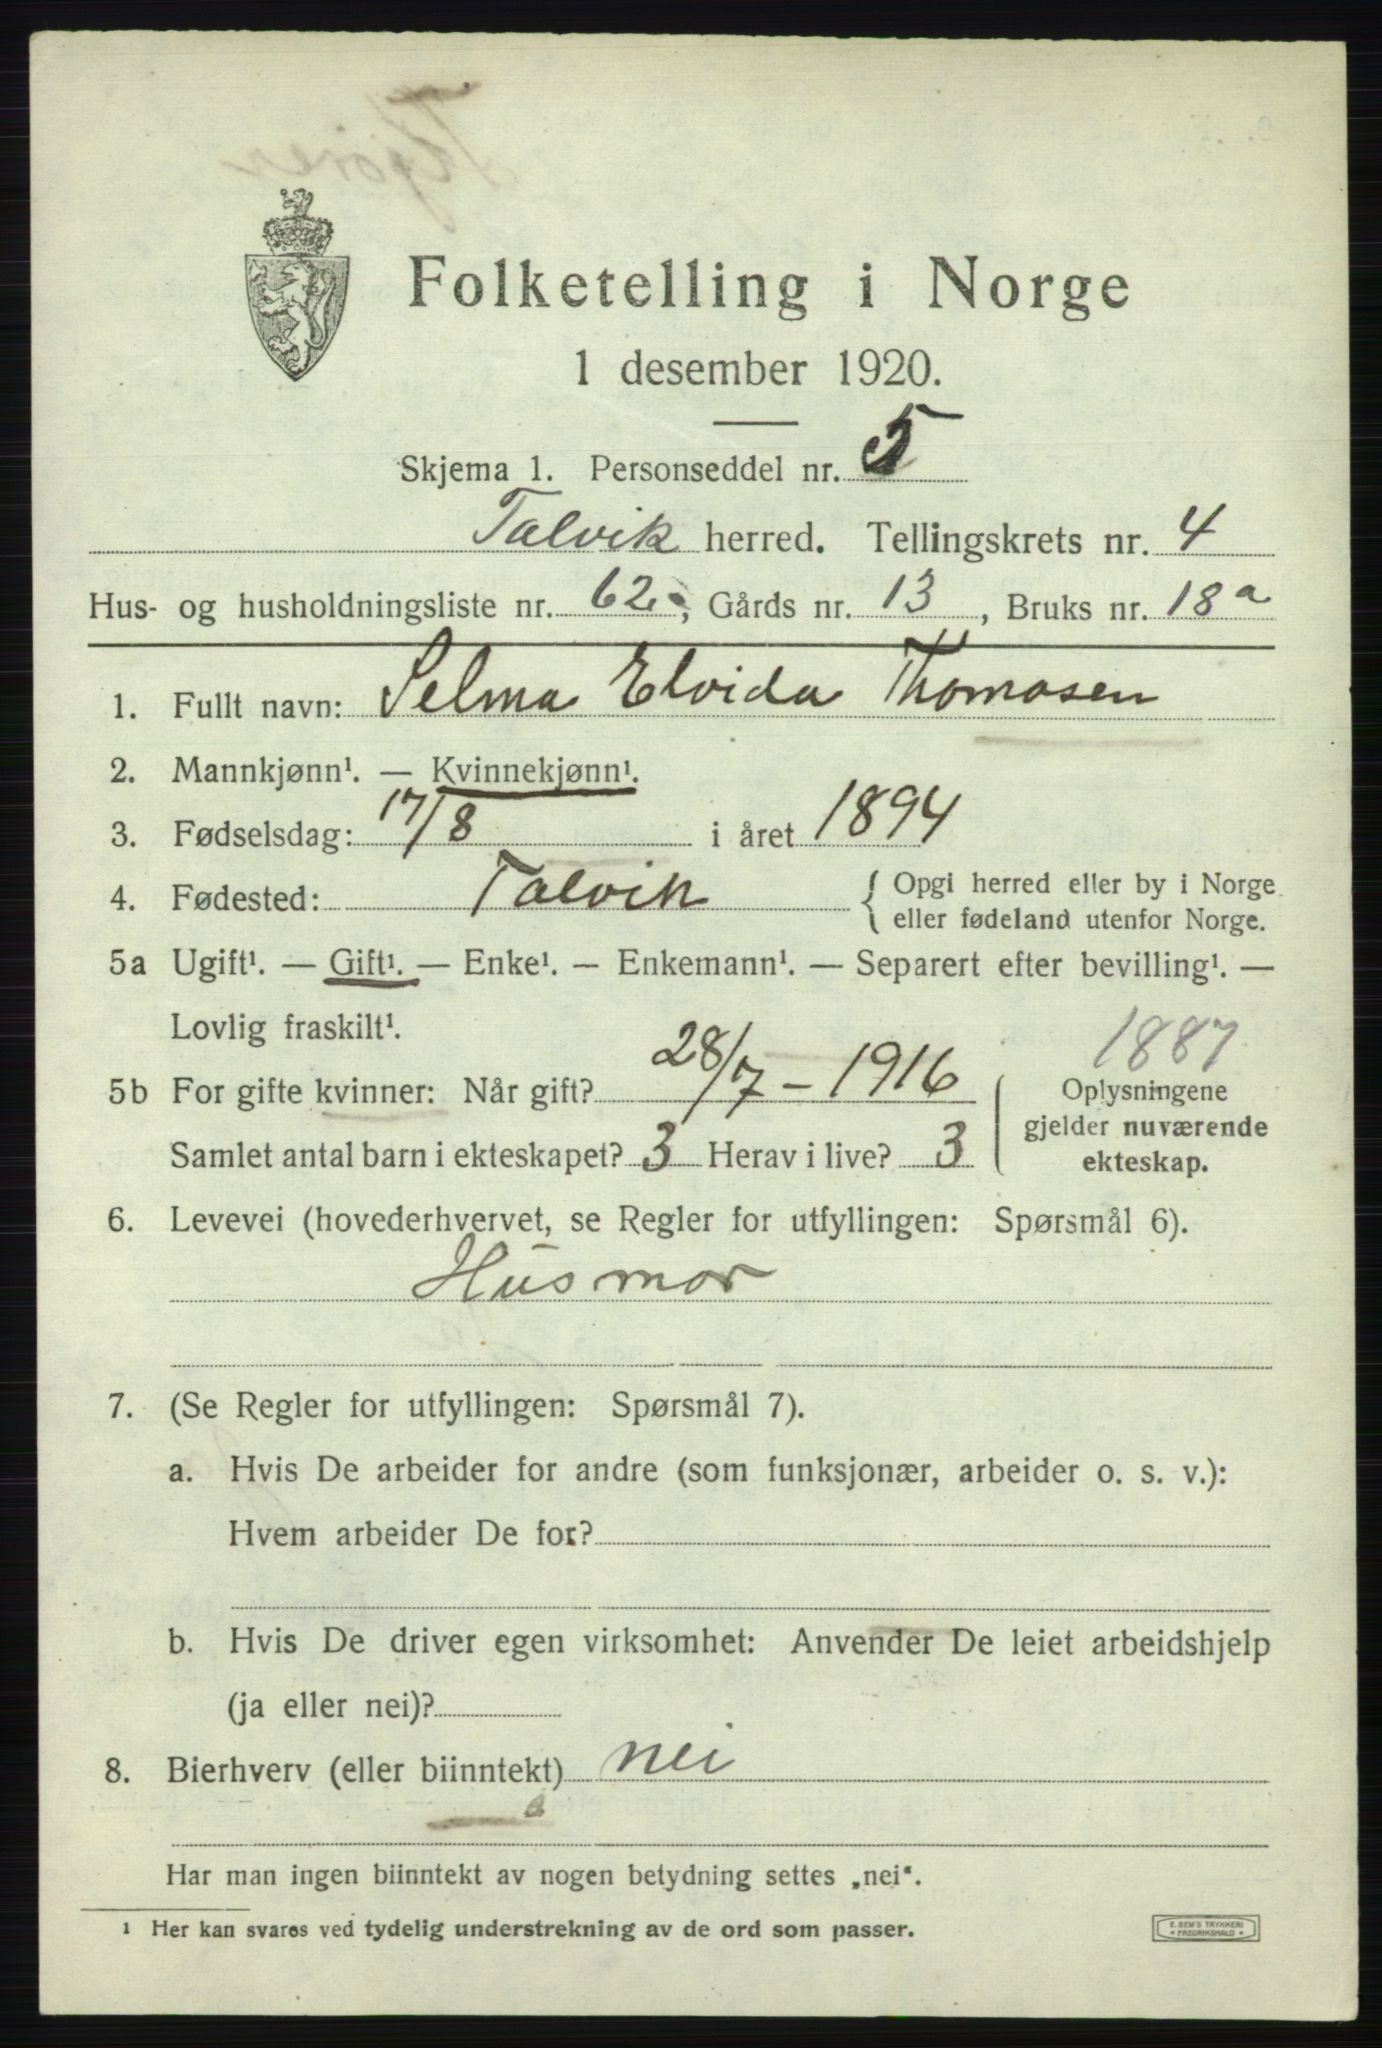 Folketelling i Norge
1 desember 1920.
Skjema 1. Personseddel nr. 5
Talvik herred. Tellingskrets nr. 4
Hus- og husholdningsliste nr. 62, Gårds nr. 13, Bruks nr. 18a
1. Fullt navn: Selma Elvida Thomasen
2. Mannkjønn¹. — Kvinnekjønn¹.
3. Fødselsdag: 17/8 i året 1894
4. Fødested: Talvik { Opgi herred eller by i Norge
eller fødeland utenfor Norge.
5a Ugift¹. — Gift¹. — Enke¹. — Enkemann¹. — Separert efter bevilling¹. —
Lovlig fraskilt¹.
1887
5b For gifte kvinner: Når gift? 28/7 - 1916
Samlet antal barn i ekteskapet? 3 Herav i live? 3
Oplysningene
gjelder nuværende
ekteskap.
6. Levevei (hovederhvervet, se Regler for utfyllingen: Spørsmål 6).
Husmor
7. (Se Regler for utfyllingen: Spørsmål 7).
a. Hvis De arbeider for andre (som funksjonær, arbeider o. s. v.):
Hvem arbeider De for?
b. Hvis De driver egen virksomhet: Anvender De leiet arbeidshjelp
(ja eller nei)?
8. Bierhverv (eller biinntekt) nei
Har man ingen biinntekt av nogen betydning settes „nei“.
¹ Her kan svares ved tydelig understrekning av de ord som passer.
E. SEM'S TRYKKERI
FREDRIKSHALD